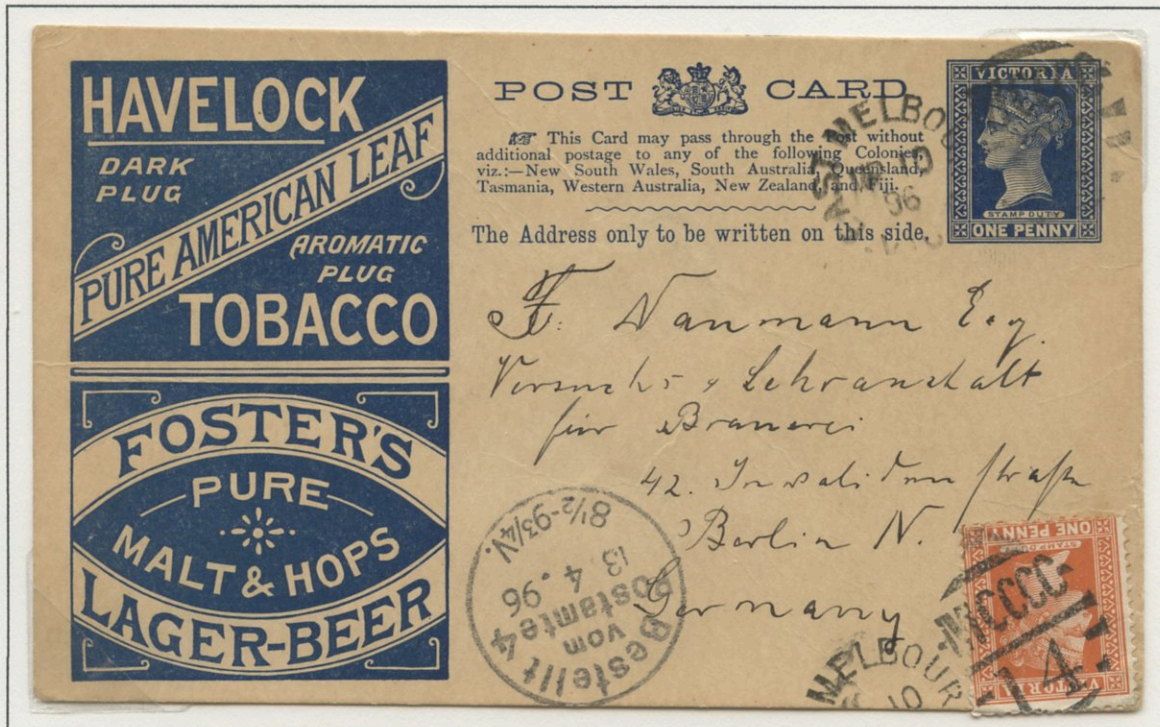 HAVELOCK
DARK
PLUG
PURE AMERICAN LEAF
AROMATIC
PLUG
TOBACCO
FOSTER'S
PURE
MALT & HOPS
LAGER-BEER
POST CARD
This Card may pass through the Post without
additional postage to any of the following Colonies,
viz.:—New South Wales, South Australia, Queensland,
Tasmania, Western Australia, New Zealand, and Fiji.
The Address only to be written on this side.
VICTORIA
STAMP DUTY
ONE PENNY
MELBOU
10
96
F. Naumann Esq
Versuchs & Lehranstalt
für Brauerei
42. Invalidenstraße
Berlin N.
Germany
Bestellt
vom
Postamte 4
13
4. 96
8½-9¾V.
MELBOUR
10
VICTORIA
ONE PENNY
14